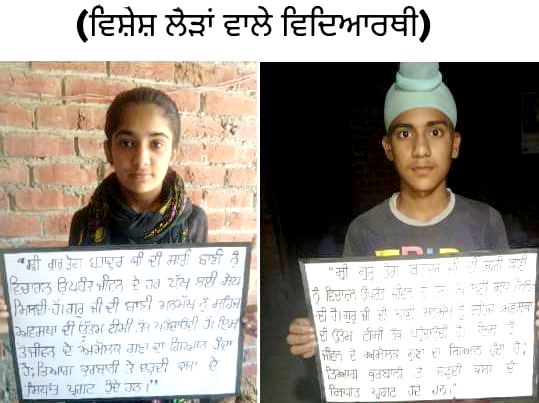 (ਵਿਸ਼ੇਸ਼ ਲੋੜਾਂ ਵਾਲੇ ਵਿਦਿਆਰਥੀ)
"ਸ੍ਰੀ ਗੁਰੂ ਤੇਗ ਬਹਾਦਰ ਜੀ ਦੀ ਸਾਰੀ ਬਾਣੀ ਨੂੰ
ਵਿਚਾਰਨ ਉਪਰੰਤ ਜੀਵਨ ਦੇ ਹਰ ਪੱਖ ਲਈ ਸੇਧ
ਮਿਲਦੀ ਹੈ। ਗੁਰੂ ਜੀ ਦੀ ਬਾਣੀ ਮਨਮੁੱਖ ਨੂੰ ਸਹਿਜ
ਅਵਸਥਾ ਦੀ ਉੱਤਮ ਟੀਸੀ ਤੱਕ ਪਹੁੰਚਾਉਂਦੀ ਹੈ। ਇਸ
ਜੀਵਨ ਦੇ ਅਮੋਲਕ ਗੁਣਾਂ ਦਾ ਗਿਆਨ ਹੁੰਦਾ
ਹੈ, ਤਿਆਗ ਕੁਰਬਾਨੀ ਤੇ ਚੜ੍ਹਦੀ ਕਲਾ ਦੇ
ਸਿਧਾਂਤ ਪ੍ਰਗਟ ਹੁੰਦੇ ਹਨ।"
"ਸ੍ਰੀ ਗੁਰੂ ਤੇਗ ਬਹਾਦਰ ਜੀ ਦੀ ਸਾਰੀ ਬਾਣੀ
ਨੂੰ ਵਿਚਾਰਨ ਉਪਰੰਤ ਜੀਵਨ ਦੇ ਹਰ ਪੱਖ ਲਈ ਸੇਧ ਮਿਲ
ਦੀ ਹੈ। ਗੁਰੂ ਜੀ ਦੀ ਬਾਣੀ ਮਨਮੁਖ ਨੂੰ ਸਹਿਜ ਅਵਸਥਾ
ਦੀ ਉੱਤਮ ਟੀਸੀ ਤੱਕ ਪਹੁੰਚਾਉਂਦੀ ਹੈ। ਇਸ ਤੋਂ
ਜੀਵਨ ਦੇ ਅਮੋਲਕ ਗੁਣਾਂ ਦਾ ਗਿਆਨ ਹੁੰਦਾ ਹੈ;
ਤਿਆਗ ਕੁਰਬਾਨੀ ਤੇ ਚੜ੍ਹਦੀ ਕਲਾ ਦੇ
ਸਿਧਾਂਤ ਪ੍ਰਗਟ ਹੁੰਦੇ ਹਨ।"